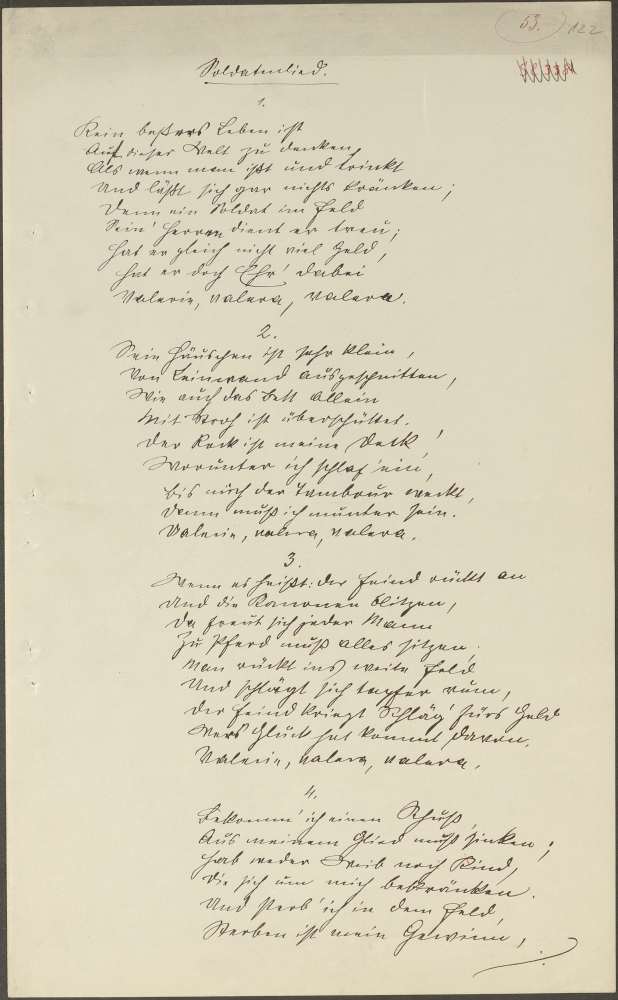 53. 122
Soldatenlied.
1.
Kein beßeres Leben ist
Auf dieser Welt zu denken,
Als wenn man ißt und trinkt
Und läßt sich gar nichts kränken;
Denn ein Soldat im Feld
Sein' Herren dient er treu;
Hat er gleich nicht viel Geld,
Hat er doch Ehr' dabei
Valerie, valera, valera.
2.
Sein Häuschen ist sehr klein,
Von Leinwand ausgeschnitten,
Wie auch das Bett allein
Mit Stroh ist überschüttet.
Der Rock ist meine Deck'
Worunter ich schlaf' ein,
Bis mich der Tambour weckt,
Dann muß ich munter sein.
Valerie, valera, valera.
3.
Wenn es heißt: der Feind rückt an
Und die Kanonen blitzen,
Da freut sich jeder Mann
Zu Pferd muß alles sitzen.
Man rückt ins weite Feld
Und schlägt sich tapfer rum,
Der Feind kriegt Schläg' fürs Geld
Wers Glück hat kommt davon.
Valerie, valera, valera.
4.
Bekomm' ich einen Schuß,
Aus meinem Glied muß sinken;
Hab weder Weib noch Kind,
Die sich um mich bekränken.
Und sterb' ich in dem Feld,
Sterben ist mein Gewinn,